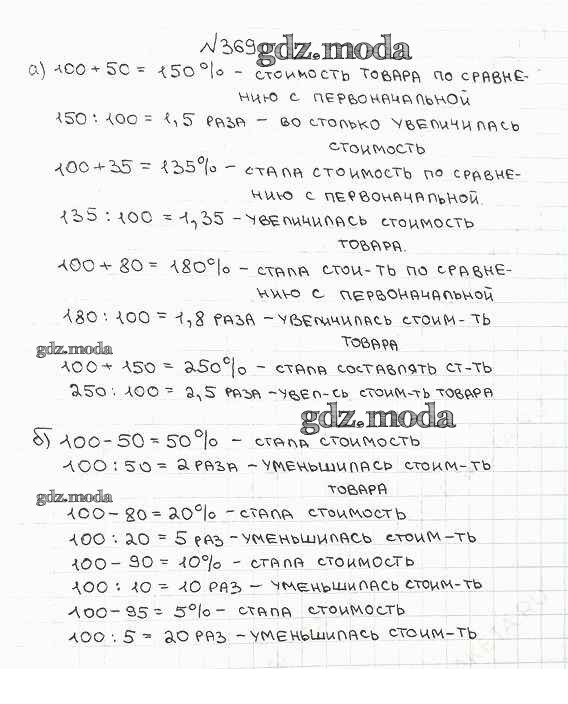 №369 gdz.moda
а) 100 + 50 = 150% – стоимость товара по сравне-
нию с первоначальной
150 : 100 = 1,5 раза – во столько увеличилась
стоимость
100 + 35 = 135% – стала стоимость по сравне-
нию с первоначальной.
135 : 100 = 1,35 – увеличилась стоимость
товара.
100 + 80 = 180% – стала стои-ть по сравне-
нию с первоначальной
180 : 100 = 1,8 раза – увеличилась стоим-ть
товара
gdz.moda
100 + 150 = 250% – стала составлять ст-ть
250 : 100 = 2,5 раза – увел-сь стоим-ть товара
gdz.moda
б) 100 – 50 = 50% – стала стоимость
100 : 50 = 2 раза – уменьшилась стоим-ть
товара
gdz.moda
100 – 80 = 20% – стала стоимость
100 : 20 = 5 раз – уменьшилась стоим-ть
100 – 90 = 10% – стала стоимость
100 : 10 = 10 раз – уменьшилась стоим-ть
100 – 95 = 5% – стала стоимость
100 : 5 = 20 раз – уменьшилась стоим-ть